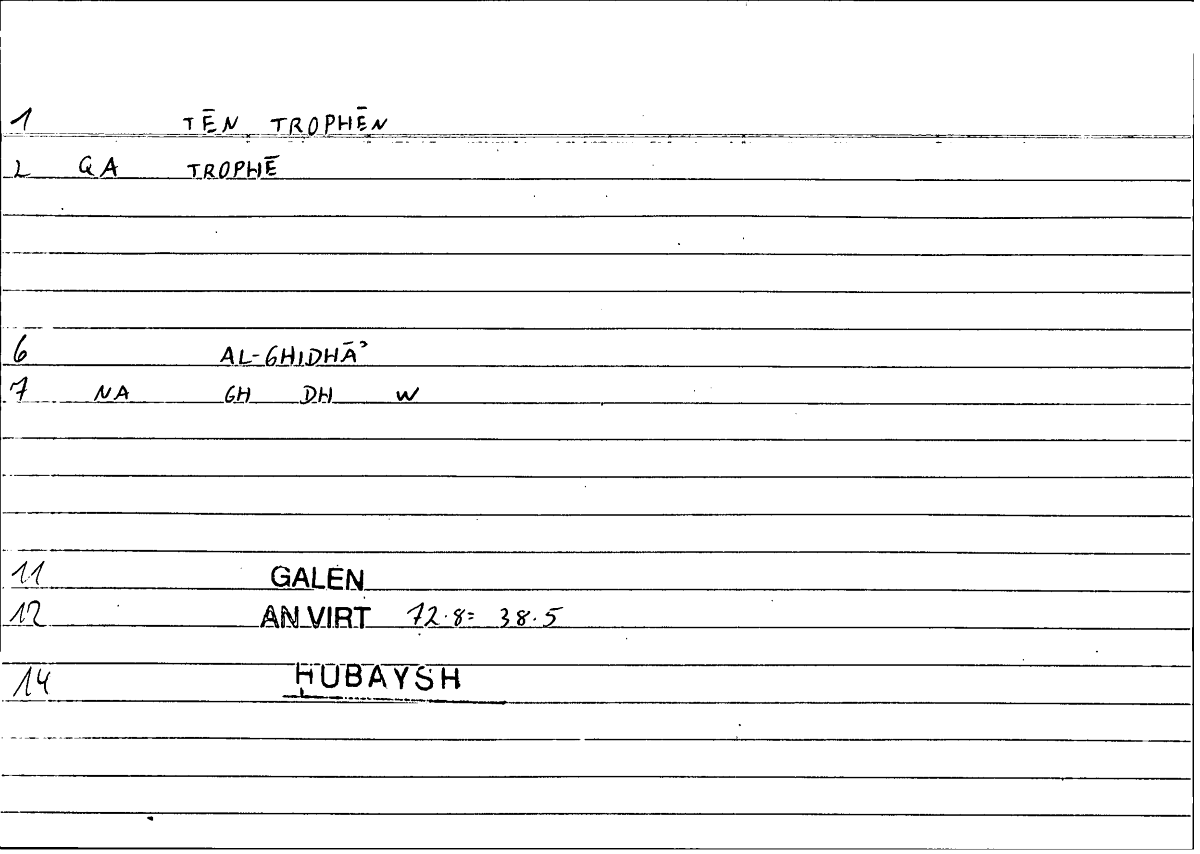 1 TĒN TROPHĒN
2 QA TROPHĒ
6 AL-GHIDHĀʾ
7 NA GH DH W
11 GALEN
12 AN VIRT 72.8= 38.5
14 HUBAYSH